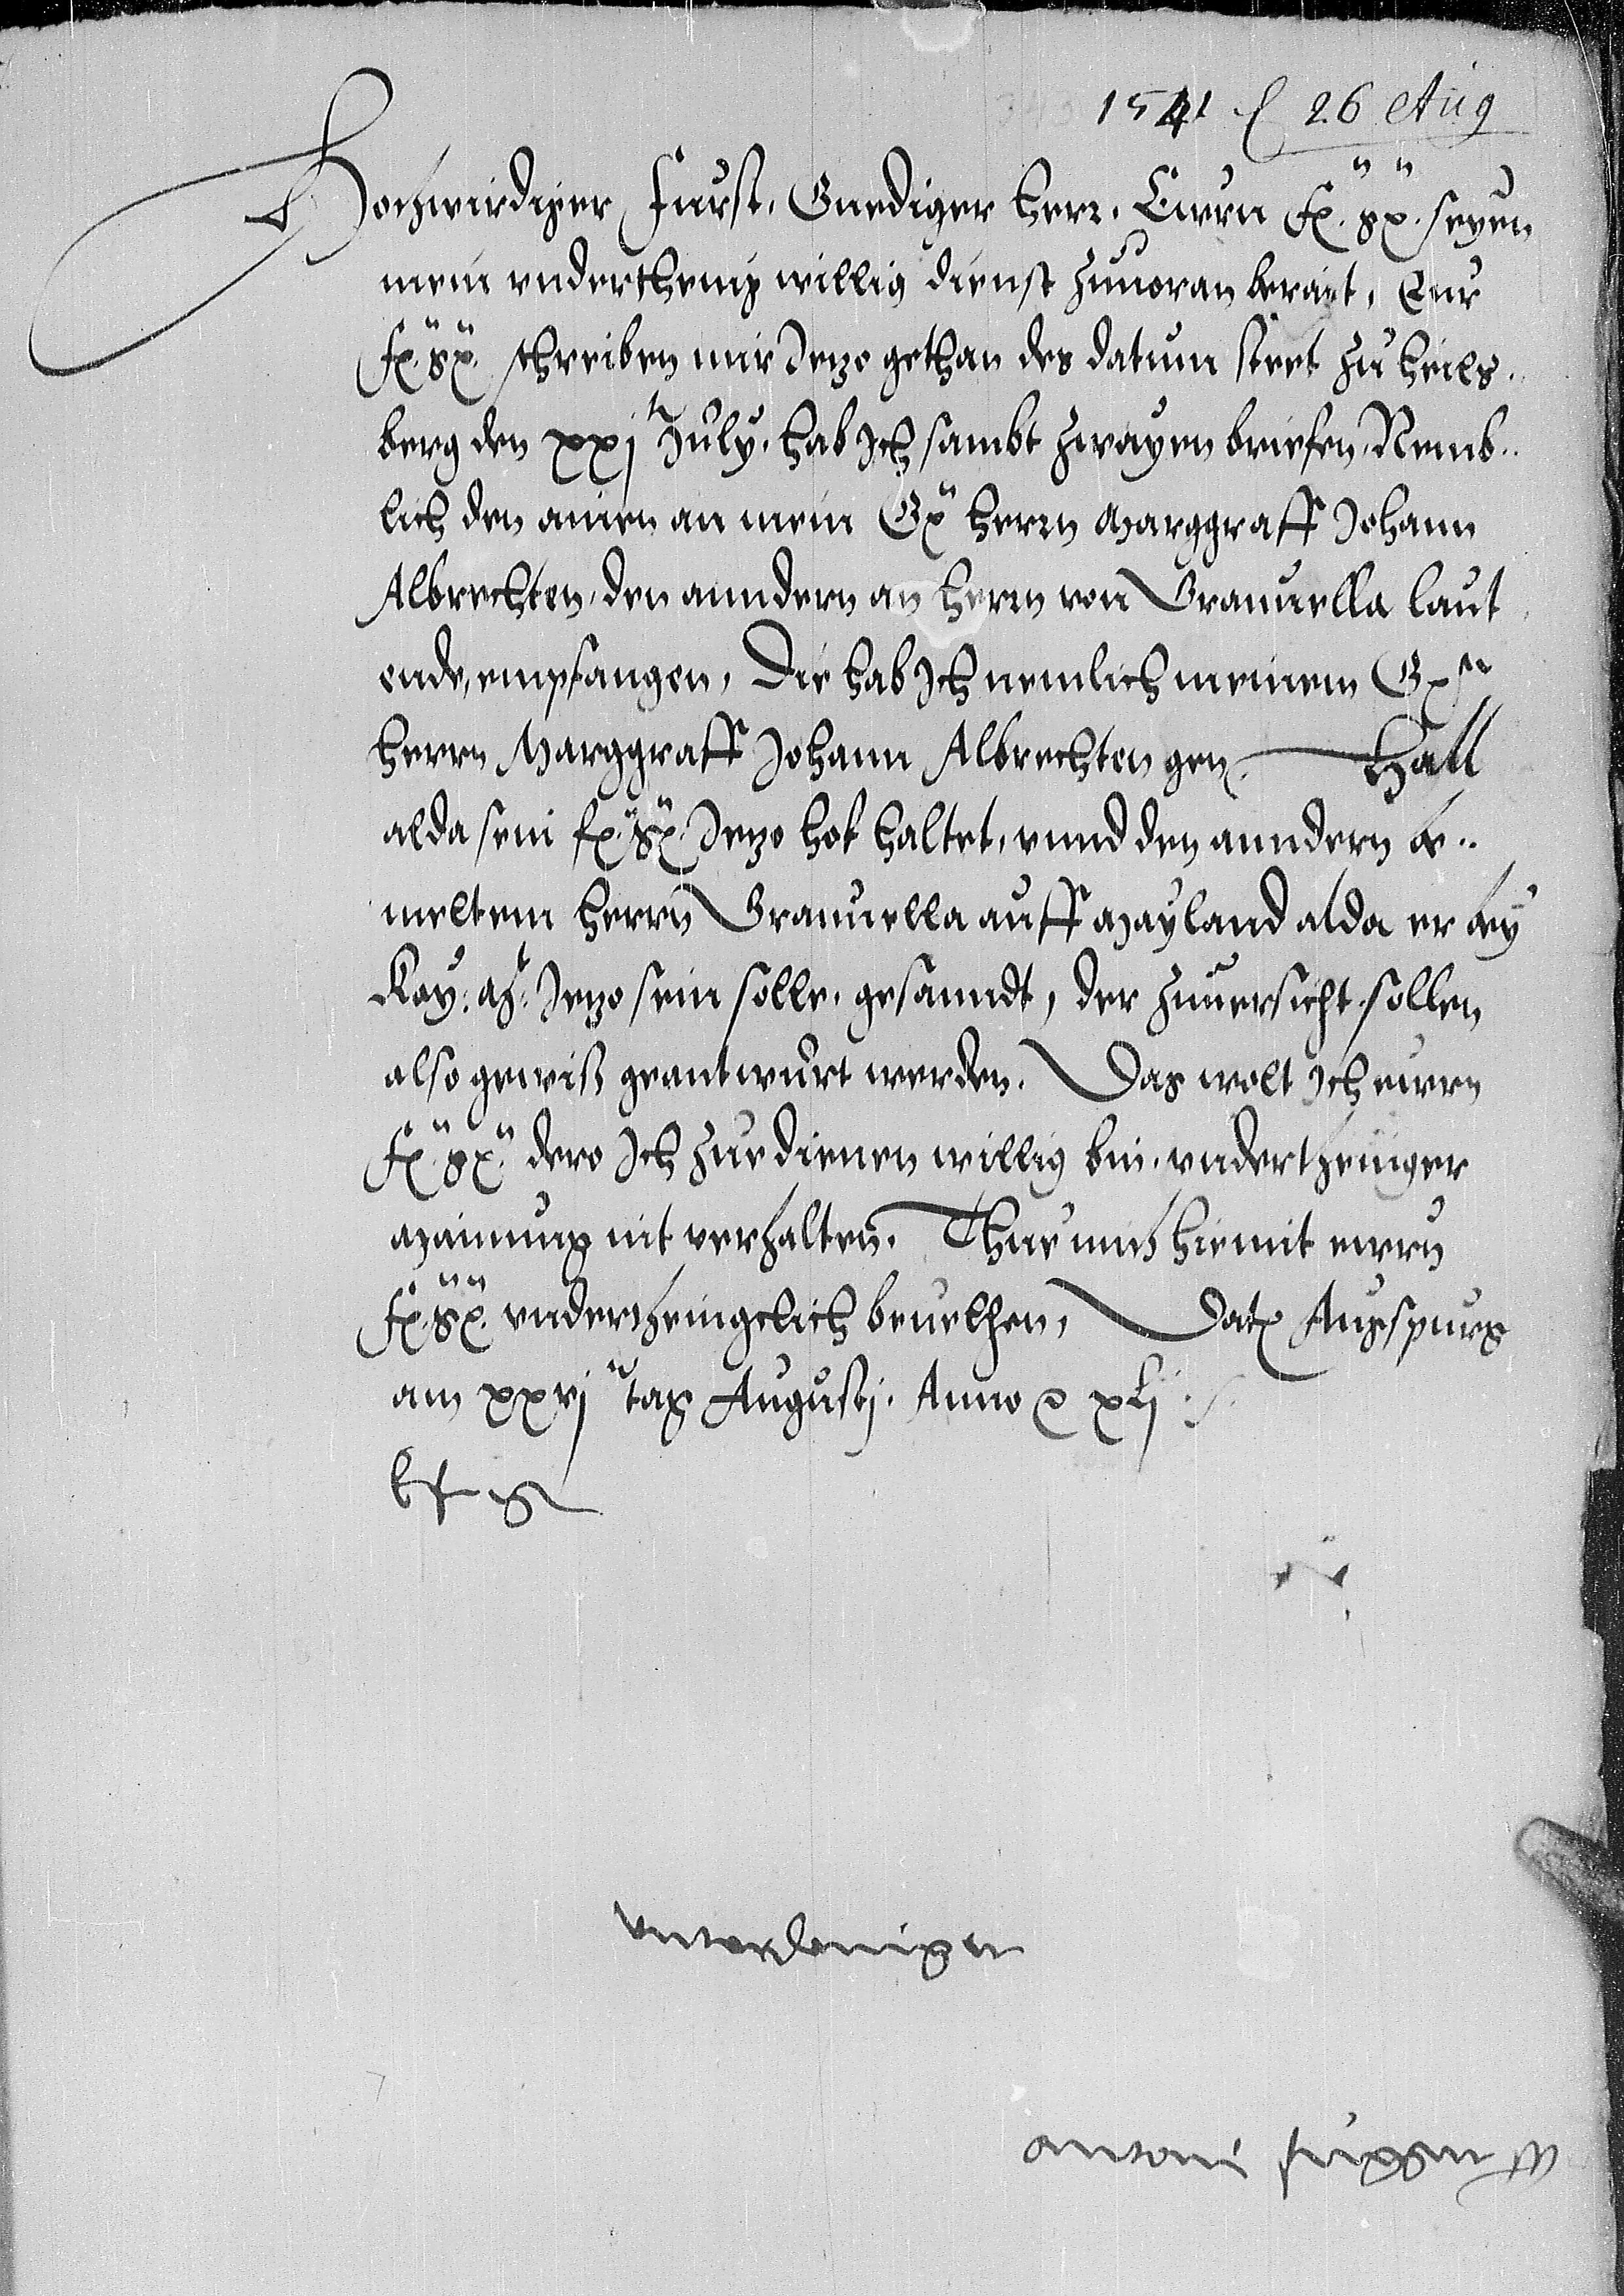 1541 26 Aug
Hochwirdiger Furst. Gnediger herr. Eurn fn. gn. seyen
mein underthenig willig dienst zuuoran berait, Eur
fn. gn. schreiben mir Jezo gethan des datum steet zu heils¬
berg den xxj July. hab Jch sambt zwayen briefen. Nemb¬
lich den ainen an mein Gn herrn Marggraff Johann
Albrechten, den anndern an herrn von Granuella laut
ende, empfangen, Die hab Jch nemlich meinem Gn
herrn Marggraff Johann Albrechten gen Hall
alda sein fn. gn. Jezo hof haltet, vnnd den anndern be¬
meltem herrn Granuella auff Mayland alda er bey
Kay: Mt: Jezo sein solle, gesanndt, der zuuersicht sollen
also gewiß geantwurt werden. Das wolt Jch eurn
fn. gn. dero Jch zue dienen willig bin. undertheniger
Mainung nit verhalten. Thue mich hiemit eurn
fn. gn. underthenigclich beuelhen, Dat Augspurg
am xxvj tag Augustj. Anno xLj
E f g
unterdeniger
antoni fugger